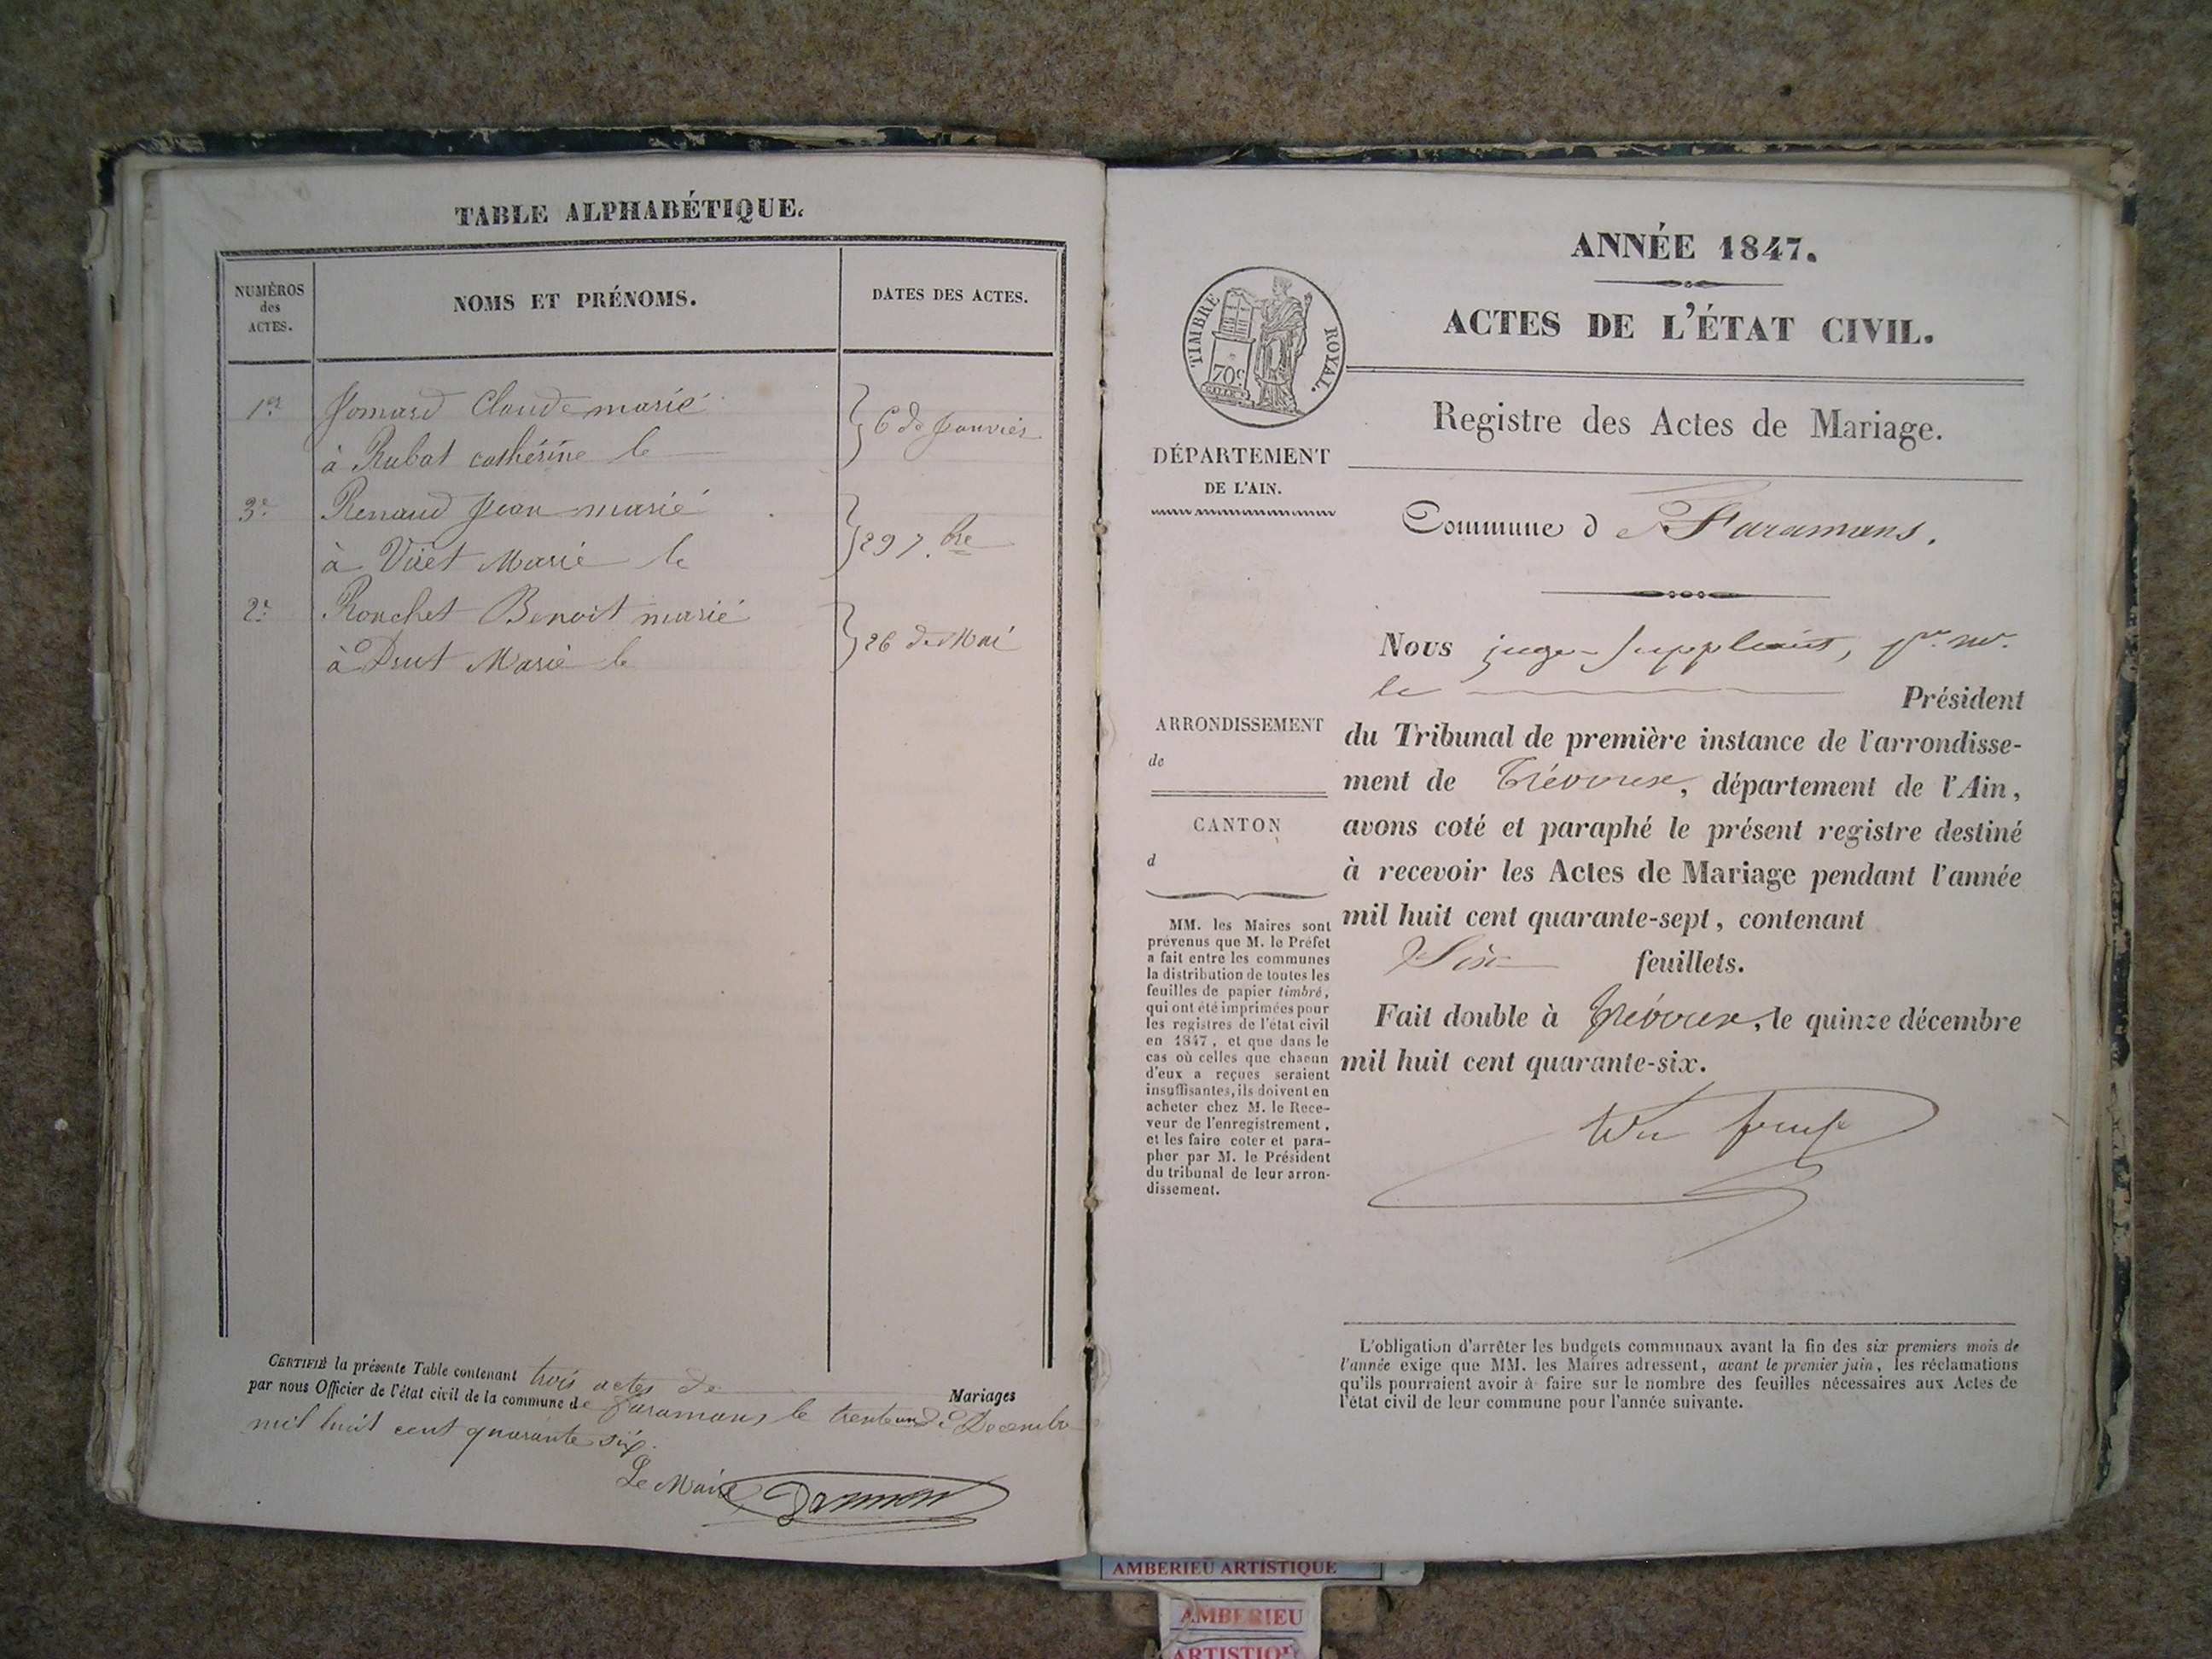 TABLE ALPHABÉTIQUE.
NUMÉROS
des
ACTES.
NOMS ET PRÉNOMS.
DATES DES ACTES.
1er Jomard Claude marié
à Rubat cathérine le
6 de Janvier
3e Renaud Jean marié
à Viret Marie le
29 7.bre
2e Ronchet Benoit marié
à Marie le
26 de Mai
CERTIFIÉ la présente Table contenant trois actes de Mariages
par nous Officier de l'état civil de la commune de Faramans le trente un de Decembre
mil huit cent quarante six.
Le Maire
ANNÉE 1847.
ACTES DE L'ÉTAT CIVIL.
TIMBRE ROYAL.
70c
Registre des Actes de Mariage.
DÉPARTEMENT
DE L'AIN.
Commune de Faramans.
Nous juge-Suppléant,
le Président
du Tribunal de première instance de l'arrondisse-
ment de Trévoux, département de l'Ain,
avons coté et paraphé le présent registre destiné
à recevoir les Actes de Mariage pendant l'année
mil huit cent quarante-sept, contenant
Six feuillets.
Fait double à Trévoux, le quinze décembre
mil huit cent quarante-six.
ARRONDISSEMENT
de
CANTON
d
MM. les Maires sont
prévenus que M. le Préfet
a fait entre les communes
la distribution de toutes les
feuilles de papier timbré,
qui ont été imprimées pour
les registres de l'état civil
en 1847, et que dans le
cas où celles que chacun
d'eux a reçues seraient
insuffisantes, ils doivent en
acheter chez M. le Rece-
veur de l'enregistrement,
et les faire coter et para-
pher par M. le Président
du tribunal de leur arron-
dissement.
L'obligation d'arrêter les budgets communaux avant la fin des six premiers mois de
l'année exige que MM. les Maires adressent, avant le premier juin, les réclamations
qu'ils pourraient avoir à faire sur le nombre des feuilles nécessaires aux Actes de
l'état civil de leur commune pour l'année suivante.
AMBERIEU ARTISTIQUE
AMBERIEU
ARTISTIQUE